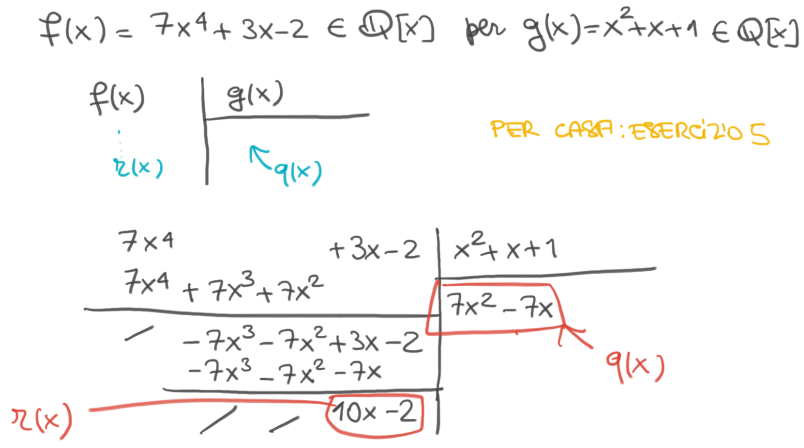 f(x) = 7x⁴ + 3x - 2 ∈ ℚ[x] per g(x) = x² + x + 1 ∈ ℚ[x]
f(x) g(x)
r(x) q(x)
PER CASA: ESERCIZIO 5
7x⁴ + 3x - 2 x² + x + 1
7x⁴ + 7x³ + 7x² 7x² - 7x
- 7x³ - 7x² + 3x - 2
- 7x³ - 7x² - 7x q(x)
r(x) 10x - 2